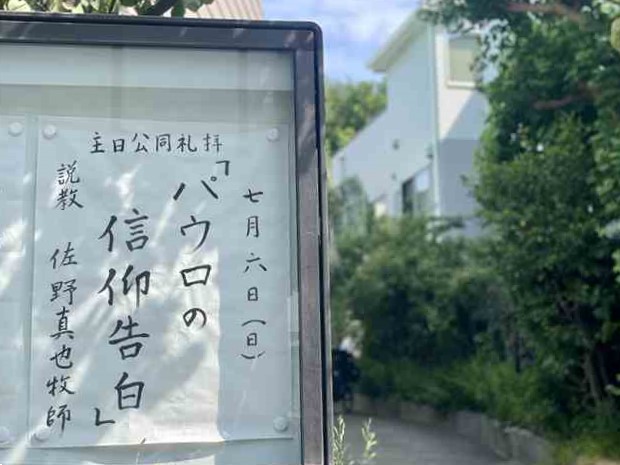 主日公同礼拝
七月六日(日)
「パウロの
信仰告白」
説教 佐野真也牧師